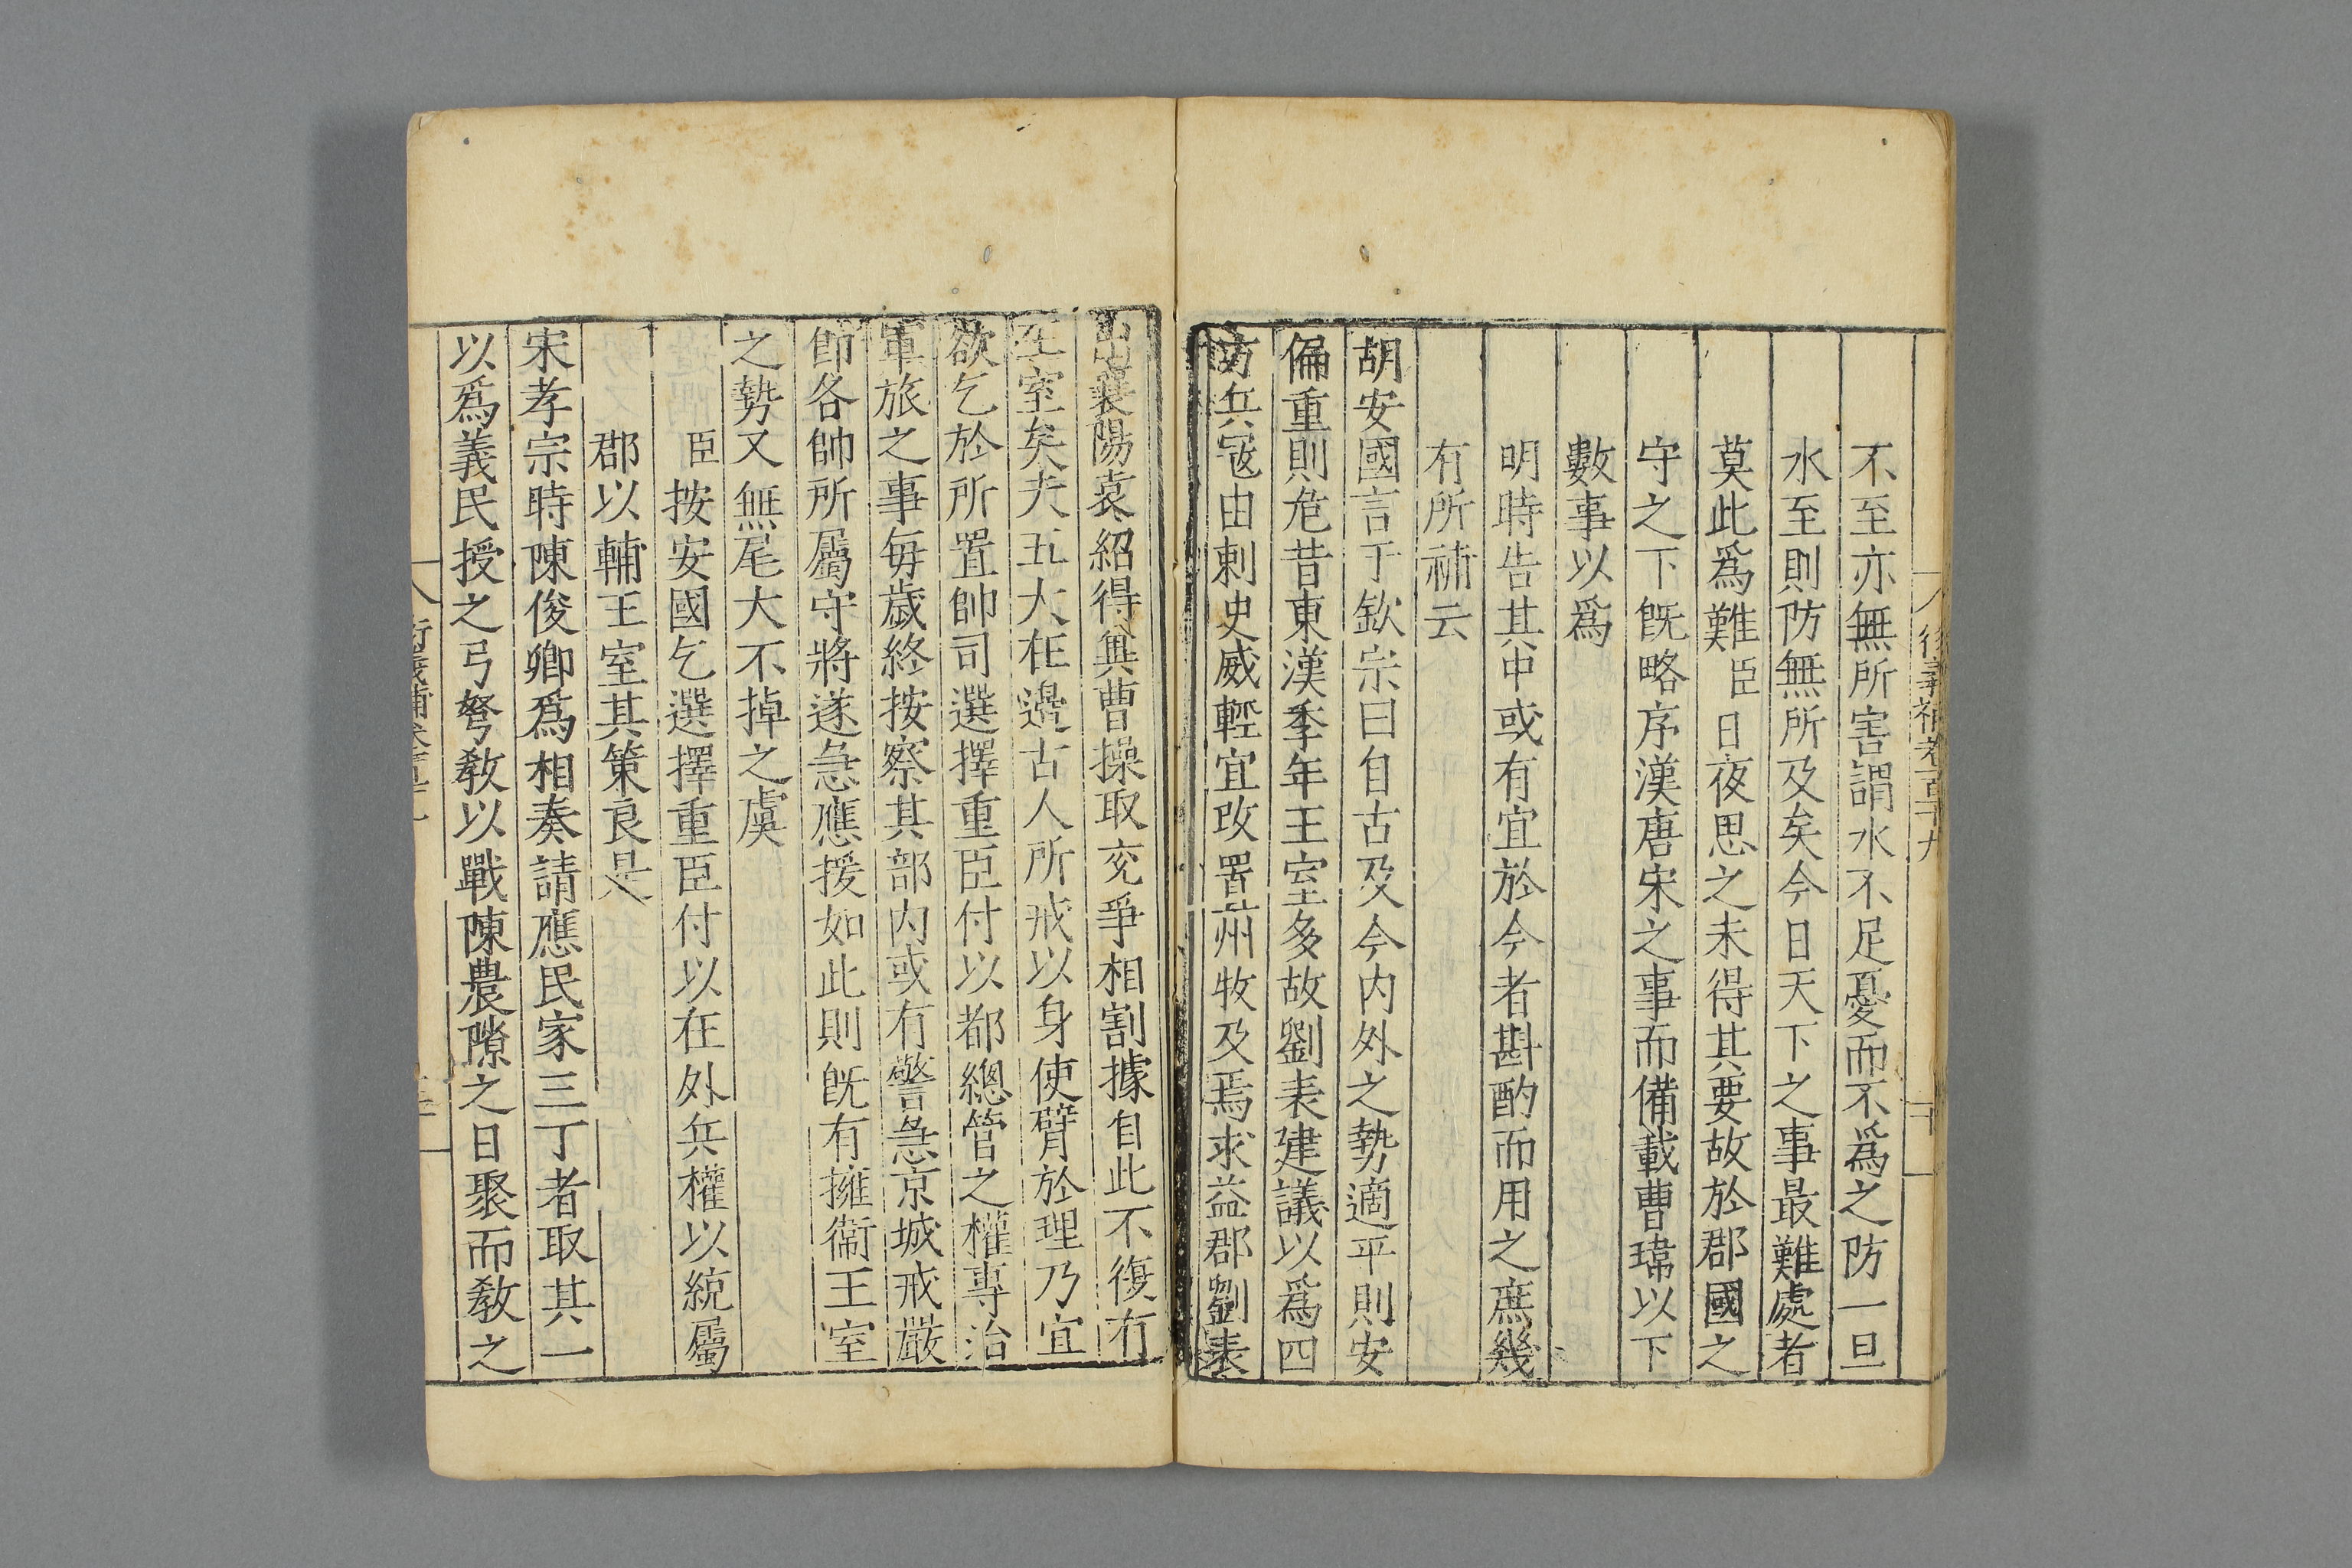 不至亦無所害謂水不足憂而不爲之防一旦
水至則防無所及矣今日天下之事最難處者
莫此爲難臣日夜思之未得其要故於郡國之
守之下旣略序漢唐宋之事而備載曹瑋以下
數事以爲
明時告其中或有宜於今者斟酌而用之庶幾
有所補云
胡安國言于欽宗曰自古及今内外之勢適平則安
偏重則危昔東漢季年王室多故劉表建議以爲四
方兵寇由刺史威輕宜改置州牧及焉求益郡劉表
出襄陽袁紹得冀曹操取兗爭相割據自此不復有
王室矣夫五大在邊古人所戒以身使臂於理乃宜
欲乞於所置帥司選擇重臣付以都總管之權專治
軍旅之事每歲終按察其部内或有警急京城戒嚴
卽各帥所屬守將遂急應援如此則旣有擁衞王室
之勢又無尾大不掉之虞
臣按安國乞選擇重臣付以在外兵權以統屬
郡以輔王室其策良是
宋孝宗時陳俊卿爲相奏請應民家三丁者取其一
以爲義民授之弓弩敎以戰陳農隙之日聚而敎之